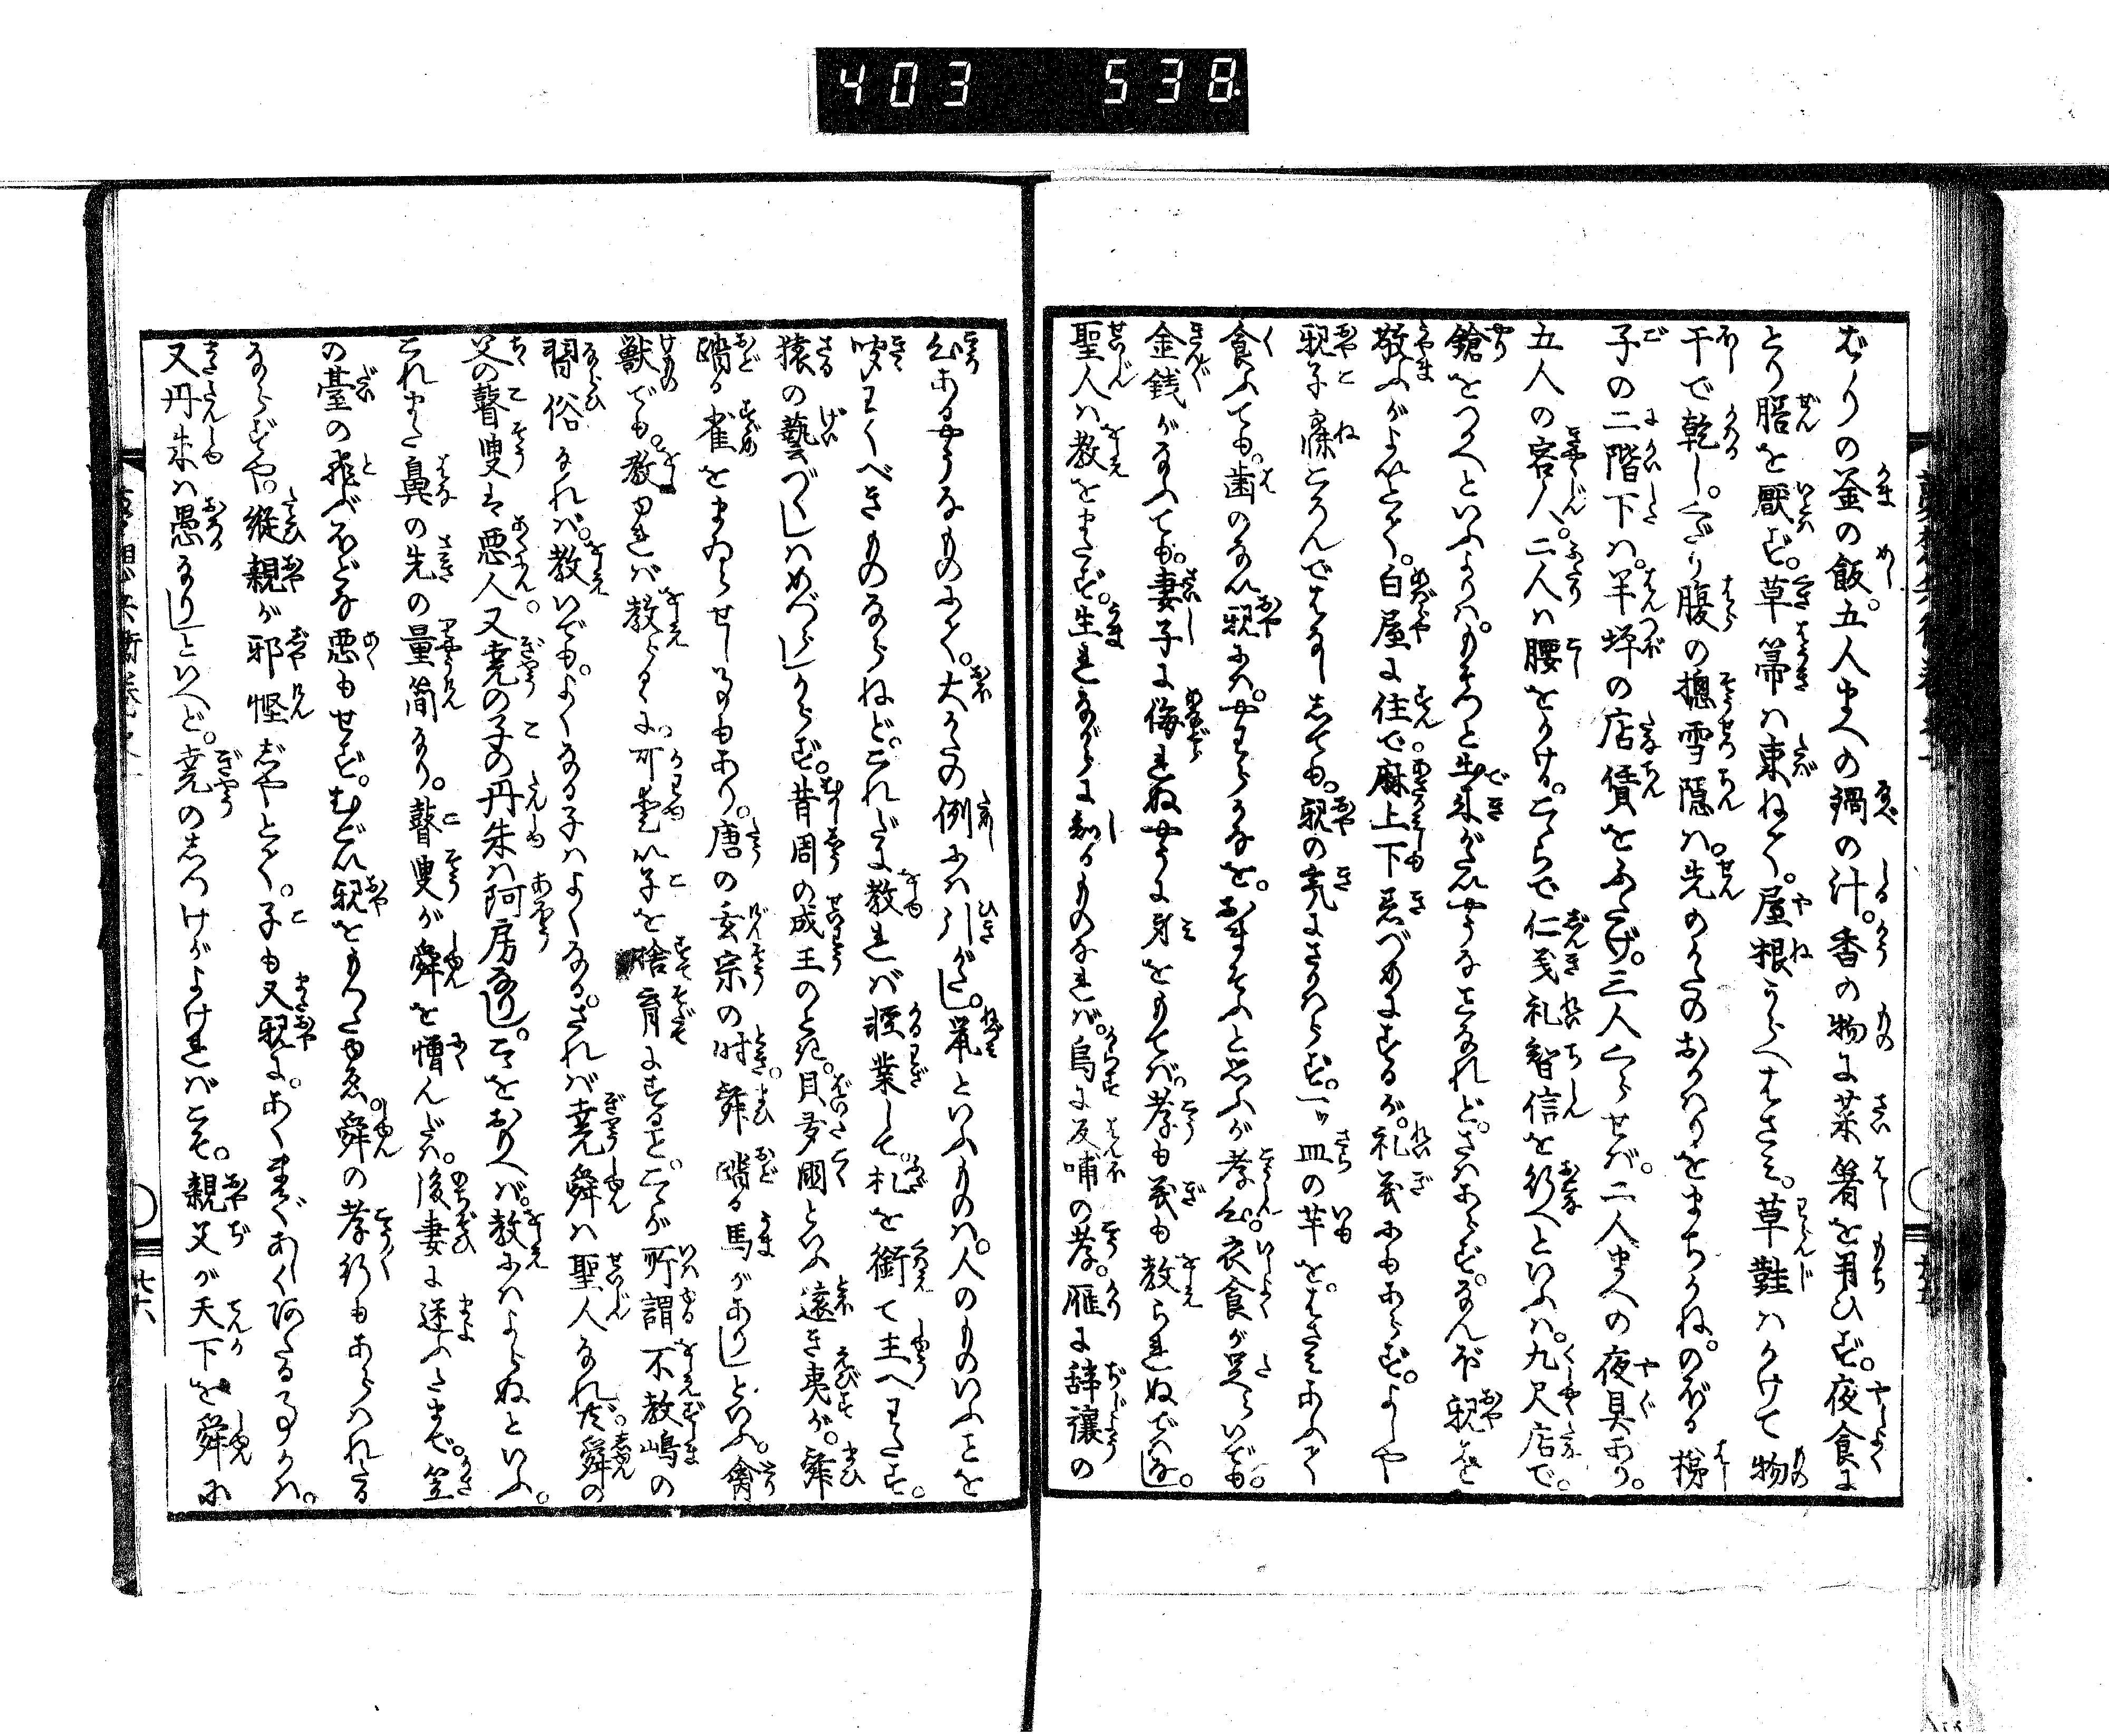 403 538
ぶりの釜の飯。五人まへの鍋の汁。香の物に菜箸を用ひず。夜食に
とり膳を厭ず。草箒は束ねて。屋根うらへはさみ。草鞋はかけて物
干で乾し。くだり腹の摠雪隠は。先のかたのおかはりをまちかね。のぼる梯
子の二階下は。半坪の店賃をふさげ。三人くらせば。二人まへの夜具あり。
五人の客人。二人は腰をかける。こゝらで仁義礼智信を行へといふは。九尺店で。
鎗をつかへといふよりは。もそつと出来がたいやうなことなれど。さはあらず。なんぼ親を
敬ふがよいとて。白屋に住で麻上下着づめにするが。礼義にもあらず。よしや
親子寐ころんではなししても。親の気にさかはらず。一ッ皿の芋を。はさみあふて
食ふても。歯のない親には。やはらかなを。おまそふと思ふが孝心。衣食が足らいでも。
金銭がなふても。妻子に侮れぬやうに身をもてば。孝も義も教られぬではなし。
聖人は教をまたず。生れながらに知るものなれば。烏に反哺の孝。雁に辞讓の
心あるやうなものにて。大かたの例には引がたし。鼠といふものは。人のものいふことを
聴わくべきものならねど。これだに教れば軽業して。札を銜て主へわたす。
猿の藝づくしはめづらしからず。昔周の成王のとき。貝多國といふ遠き夷が。舞
踏る雀をまゐらせし事もあり。唐の玄宗の時。舞踏る馬がありしといふ。禽
獣でも。教ゆれば教らるゝに。可愛い子を捨育にすること。こゝが所謂不教嶋の
習俗なれば。教いでも。よくなる子はよくなる。されば堯舜は聖人なれど。舜の
父の瞽叟は悪人。又堯の子の丹朱は阿房なりし。こゝをおもへば。教にはよらぬといふ。
これまた鼻の先の量簡なり。瞽叟が舜を憎んだは。後妻に迷ふたまで。笠
の臺の飛ぶほどな悪もせず。むごい親をもつたゆゑ。舜の孝行もあらはれたる
ならずや。縦親が邪慳じやとて。子も又親に。あくまであしく汲たる事かは。
又丹朱は愚なりしといへど。堯のしつけがよければこそ。親父が天下を舜に
廿五
廿六